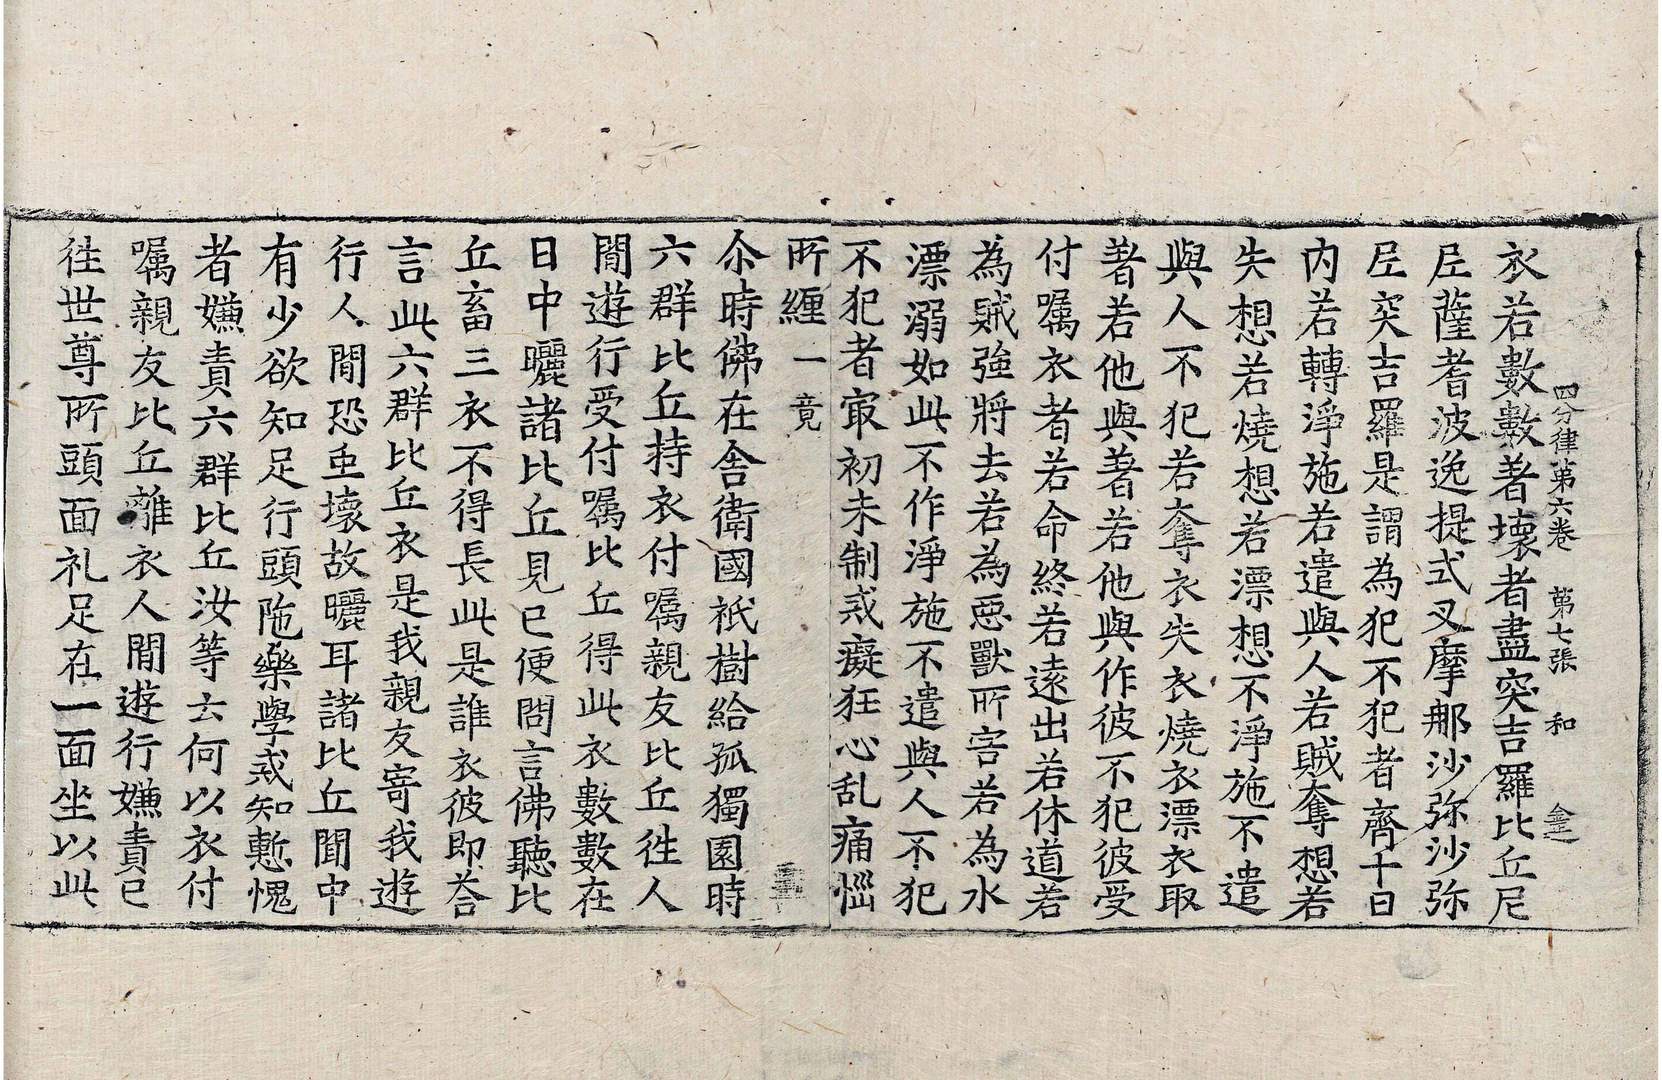 四分律第六卷 第七張 和
衣若數數著壞者盡突吉羅比丘尼
尼薩耆波逸提式叉摩那沙弥沙弥
尼突吉羅是謂為犯不犯者齊十日
内若轉淨施若遣與人若賊奪想若
失想若燒想若漂想不淨施不遣
與人不犯若奪衣失衣燒衣漂衣取
著若他與著若他與作彼不犯彼受
付嘱衣者若命終若遠出若休道若
為賊強將去若為惡獸所害若為水
漂溺如此不作淨施不遣與人不犯
不犯者㝡初未制戒癡狂心乱痛惱
所纏一 竟
尒時佛在舍衛國祇樹給孤獨園時
六群比丘持衣付嘱親友比丘徃人
間遊行受付嘱比丘得此衣數數在
日中曬諸比丘見已便問言佛聽比
丘畜三衣不得長此是誰衣彼即荅
言此六群比丘衣是我親友寄我遊
行人間恐虫壞故曬耳諸比丘聞中
有少欲知足行頭陁樂學戒知慙愧
者嫌責六群比丘汝等云何以衣付
嘱親友比丘離衣人間遊行嫌責已
徃世尊所頭面礼足在一面坐以此